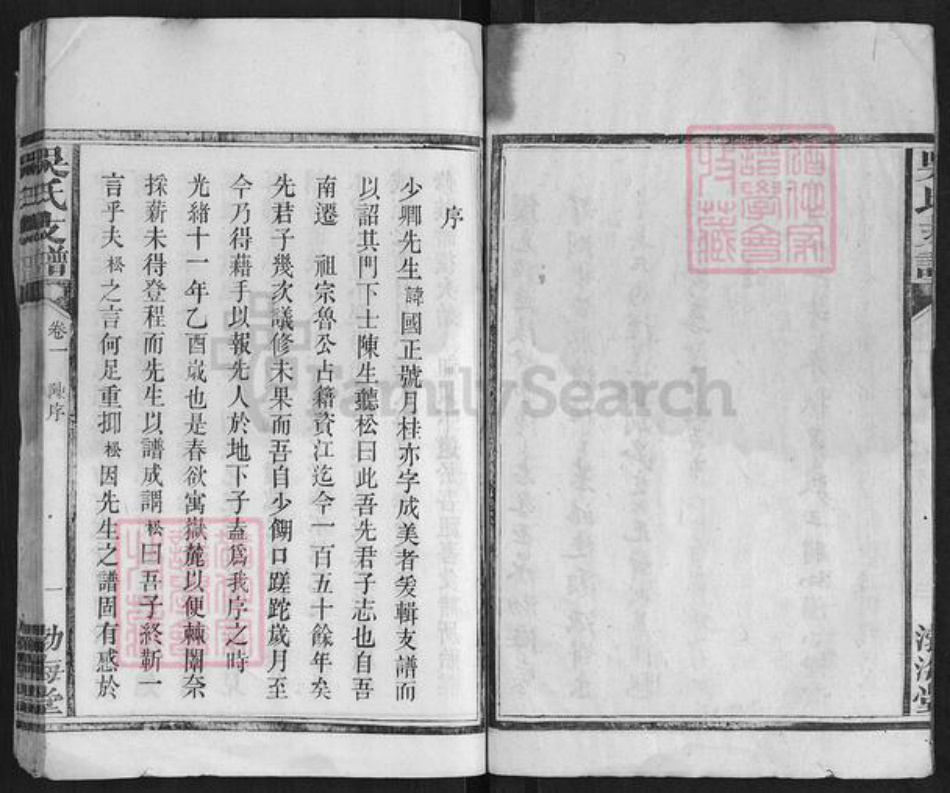 序
少卿先生諱國正號月桂亦字成美者爰輯支譜而
以詔其門下士陳生聽松曰此吾先君子志也自吾
南遷 祖宗魯公占籍資江迄今一百五十餘年矣
先君子幾次議修未果而吾自少餬口蹉跎歲月至
今乃得藉手以報先人於地下子盍爲我序之時
光緒十一年乙酉歲也是春欲寓嶽麓以便棘闈奈
採薪未得登程而先生以譜成謂松曰吾子終靳一
言乎夫松之言何足重抑松因先生之譜固有感於
吳氏支譜
卷一
陳序
一
渤海堂
FamilySearch